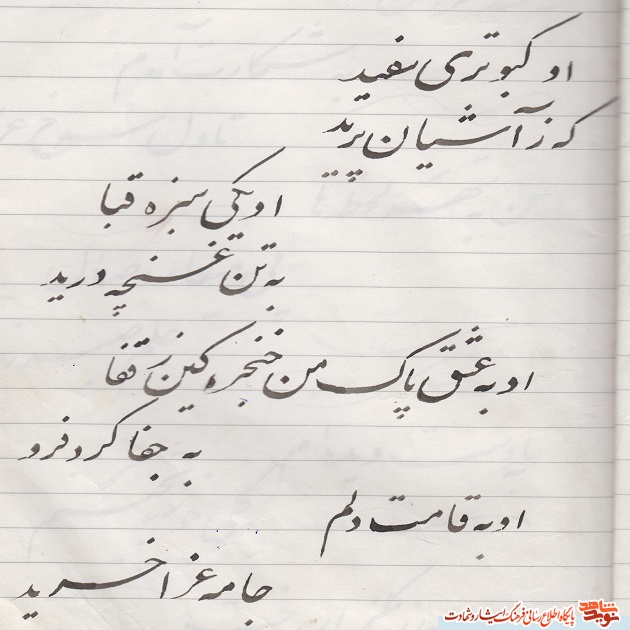 او کبوتری سفید
که ز آشیان پرید
او یکی سبزه قبا
به تن غنچه درید
او به عشق پاک من خنجر کین ز قفا
به جفا کرد فرو
او به قامت دلم
جامه عزا خرید
نوید شاهد
پایگاه اطلاع رسانی فرهنگ ایثار و شهادت